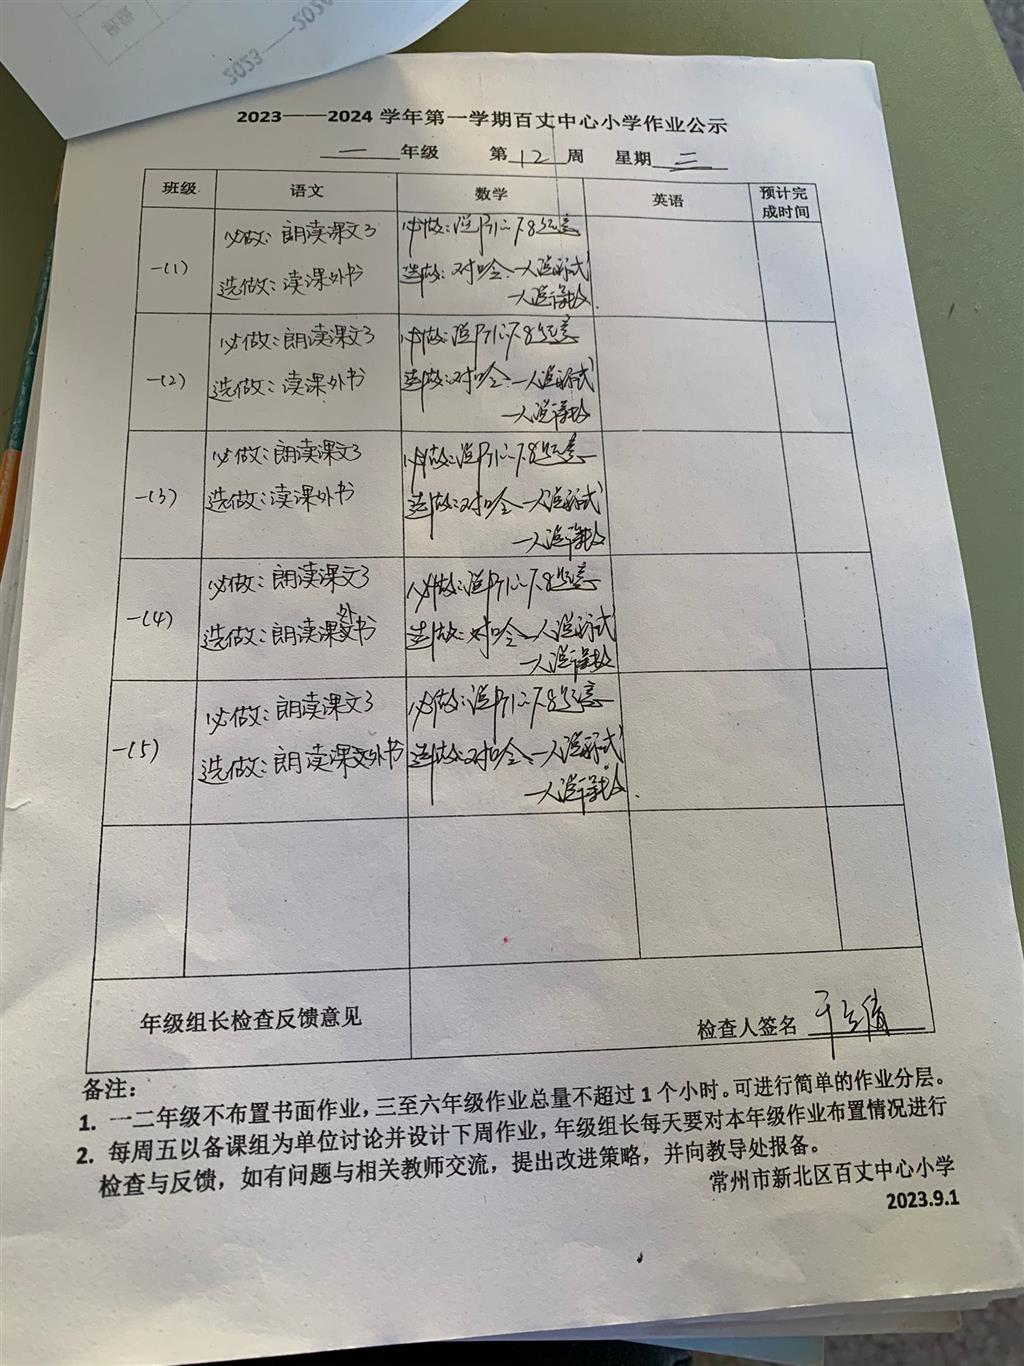 2023——2024 学年第一学期百丈中心小学作业公示
一 年级 第 12 周 星期 三
班级 语文 数学 英语 预计完成时间
一(1)
必做：朗读课文3
选做：读课外书
必做：说P71~78题意
选做：对口令：一人说算式
一人说得数.
一(2)
必做：朗读课文3
选做：读课外书
必做：说P71~78题意
选做：对口令：一人说算式
一人说得数
一(3)
必做：朗读课文3
选做：读课外书
必做：说P71~78题意
选做：对口令：一人说算式
一人说得数
一(4)
必做：朗读课文3
选做：朗读课外书
必做：说P71~78题意
选做：对口令：一人说算式
一人说得数
一(5)
必做：朗读课文3
选做：朗读课外书
必做：说P71~78题意
选做：对口令：一人说算式
一人说得数.
年级组长检查反馈意见
检查人签名
备注：
1. 一二年级不布置书面作业，三至六年级作业总量不超过 1 个小时。可进行简单的作业分层。
2. 每周五以备课组为单位讨论并设计下周作业，年级组长每天要对本年级作业布置情况进行
检查与反馈，如有问题与相关教师交流，提出改进策略，并向教导处报备。
常州市新北区百丈中心小学
2023.9.1